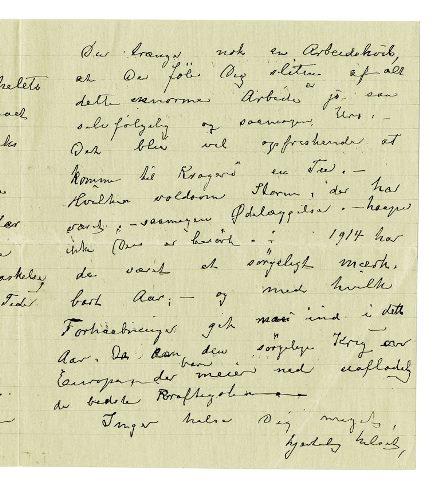 Du trænger nok en Arbeidshvile,
at De føler Dig sliten af alt
dette enorme Arbeide er jo saa
selvfølgelig og saamegen Uro. –
Det blir vel opfriskende at
komme til Kragerø en Tid. –
Hvilken voldsom Storm, der har
været, – saamegen Ødelæggelse. – haaper
ikke Dere er berørt. – 1914 har
da været et sørgeligt mærk-
bart Aar, – og med hvilke
Forhaabninger gik man ind i dette
Aar. den sørgelige Krig over
Europa, der meier ned uafladelig
de bedste Kræfter
Inger hilser Dig meget,
hjertelig hilset,
halets
askeley
Tider